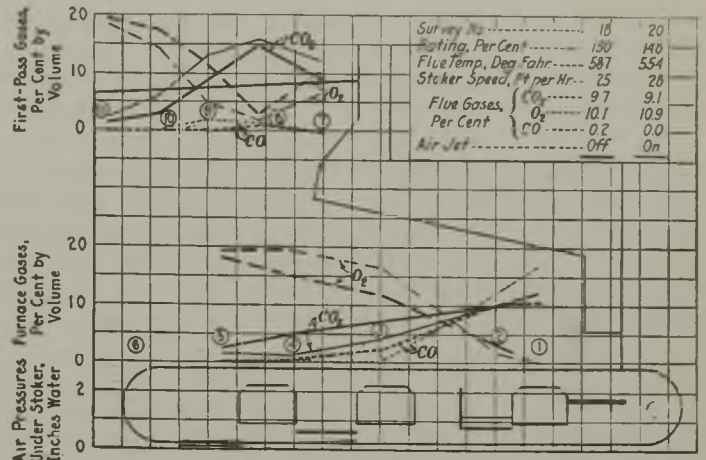 First-Pass Gases,
Per Cent by
Volume
20
10
0
CO₂
O₂
CO
Survey No. 18 20
Rating, Per Cent 150 148
Flue Temp, Deg Fahr. 587 554
Stoker Speed, Ft per Hr. 25 28
Flue Gases, Per Cent
CO₂ 9.7 9.1
O₂ 10.1 10.9
CO 0.2 0.0
Air Jet Off On
Furnace Gases,
Per Cent by
Volume
20
10
0
O₂
CO₂
CO
6
5
4
3
2
1
Air Pressures
Under Stoker,
Inches Water
2
0